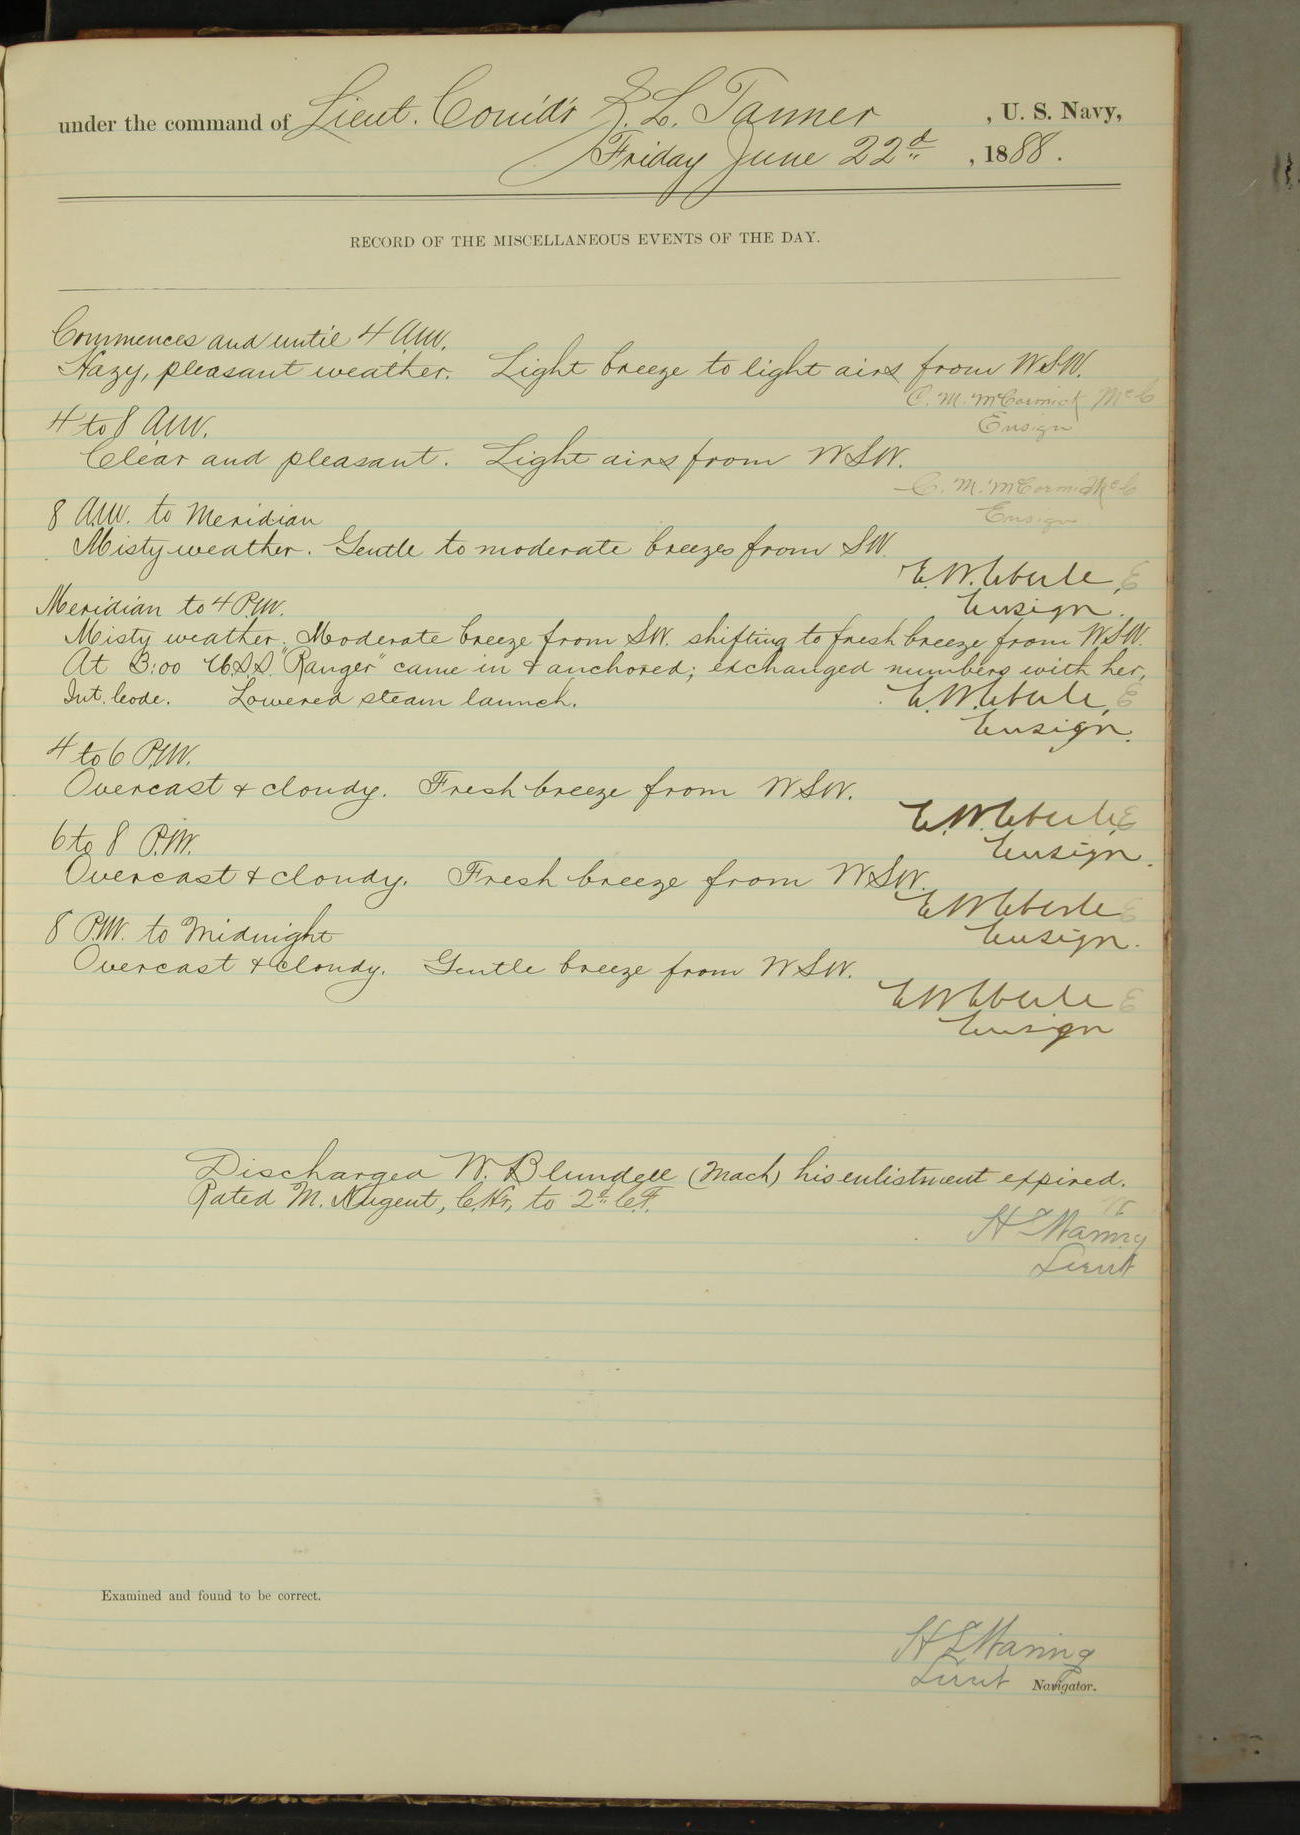 under the command of Lieut. Comd'r Z. L. Tanner, U. S. Navy,
Friday June 22d, 1888.
RECORD OF THE MISCELLANEOUS EVENTS OF THE DAY.
Commences and until 4 A.M.
Hazy, pleasant weather. Light breeze to light airs from WSW.
C. M. McCormick McC
Ensign
4 to 8 A.M.
Clear and pleasant. Light airs from WSW.
C. M. McCormick McC
Ensign
8 A.M. to Meridian
Misty weather. Gentle to moderate breezes from SW.
E. W. Eberle, E
Ensign.
Meridian to 4 P.M.
Misty weather. Moderate breeze from SW. shifting to fresh breeze from WSW.
At 3:00 U.S.S. "Ranger" came in & anchored; exchanged numbers with her,
Int. Code. Lowered steam launch.
E. W. Eberle, E
Ensign.
4 to 6 P.M.
Overcast & cloudy. Fresh breeze from WSW.
E. W. Eberle E
Ensign.
6 to 8 P.M.
Overcast & cloudy. Fresh breeze from WSW.
E W Eberle E
Ensign.
8 P.M. to Midnight
Overcast & cloudy. Gentle breeze from WSW.
E W Eberle E
Ensign
Discharged W. Blundell (Mach) his enlistment expired.
Rated M. Nugent, C.Hr, to 2d C.F.
H S Waring
Lieut
Examined and found to be correct.
H S Waring
Lieut Navigator.